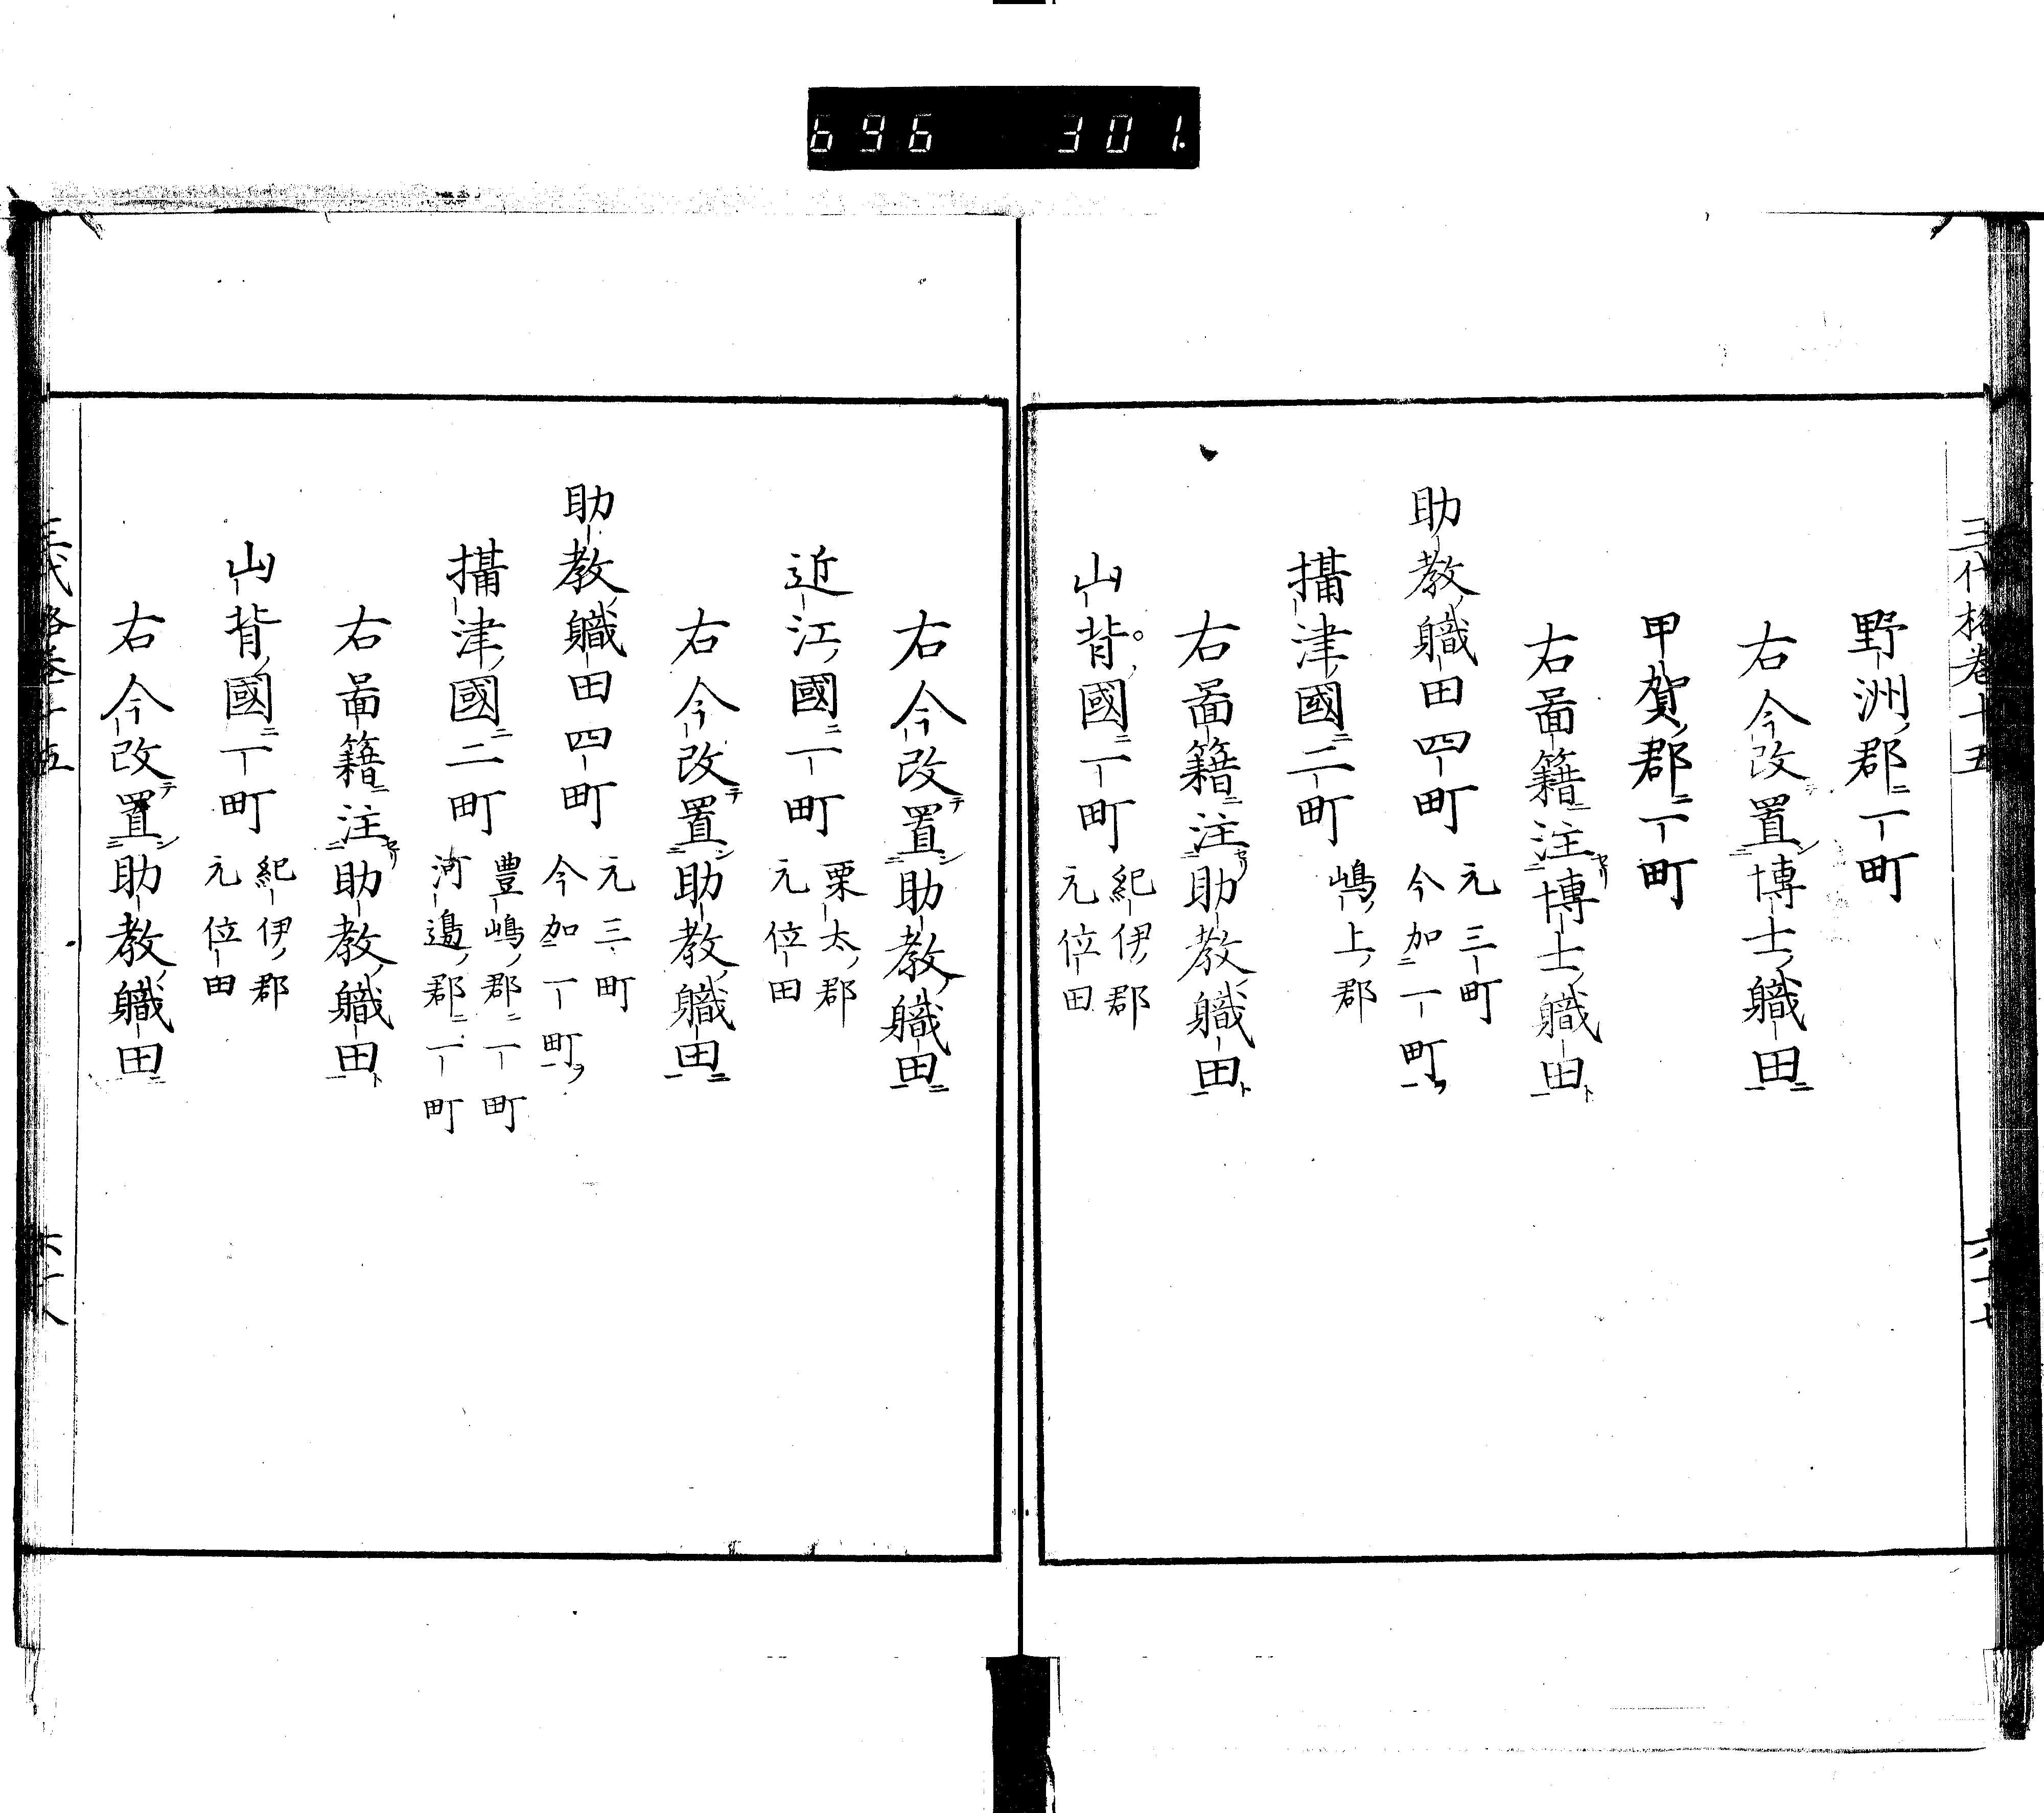 696 301
三代格卷十五
野洲郡一町
右今改置博士職田
甲賀郡一町
右啚籍注博士職田
助教職田四町 元三町 今加一町
攝津國二町 嶋上郡
右啚籍注助教職田
山背國一町 紀伊郡 元位田
六十七
右今改置助教職田
近江國一町 栗太郡 元位田
右今改置助教職田
助教職田四町 元三町 今加一町
攝津國二町 豊嶋郡一町 河邊郡一町
右啚籍注助教職田
山背國一町 紀伊郡 元位田
右今改置助教職田
三代格卷十五
六十八